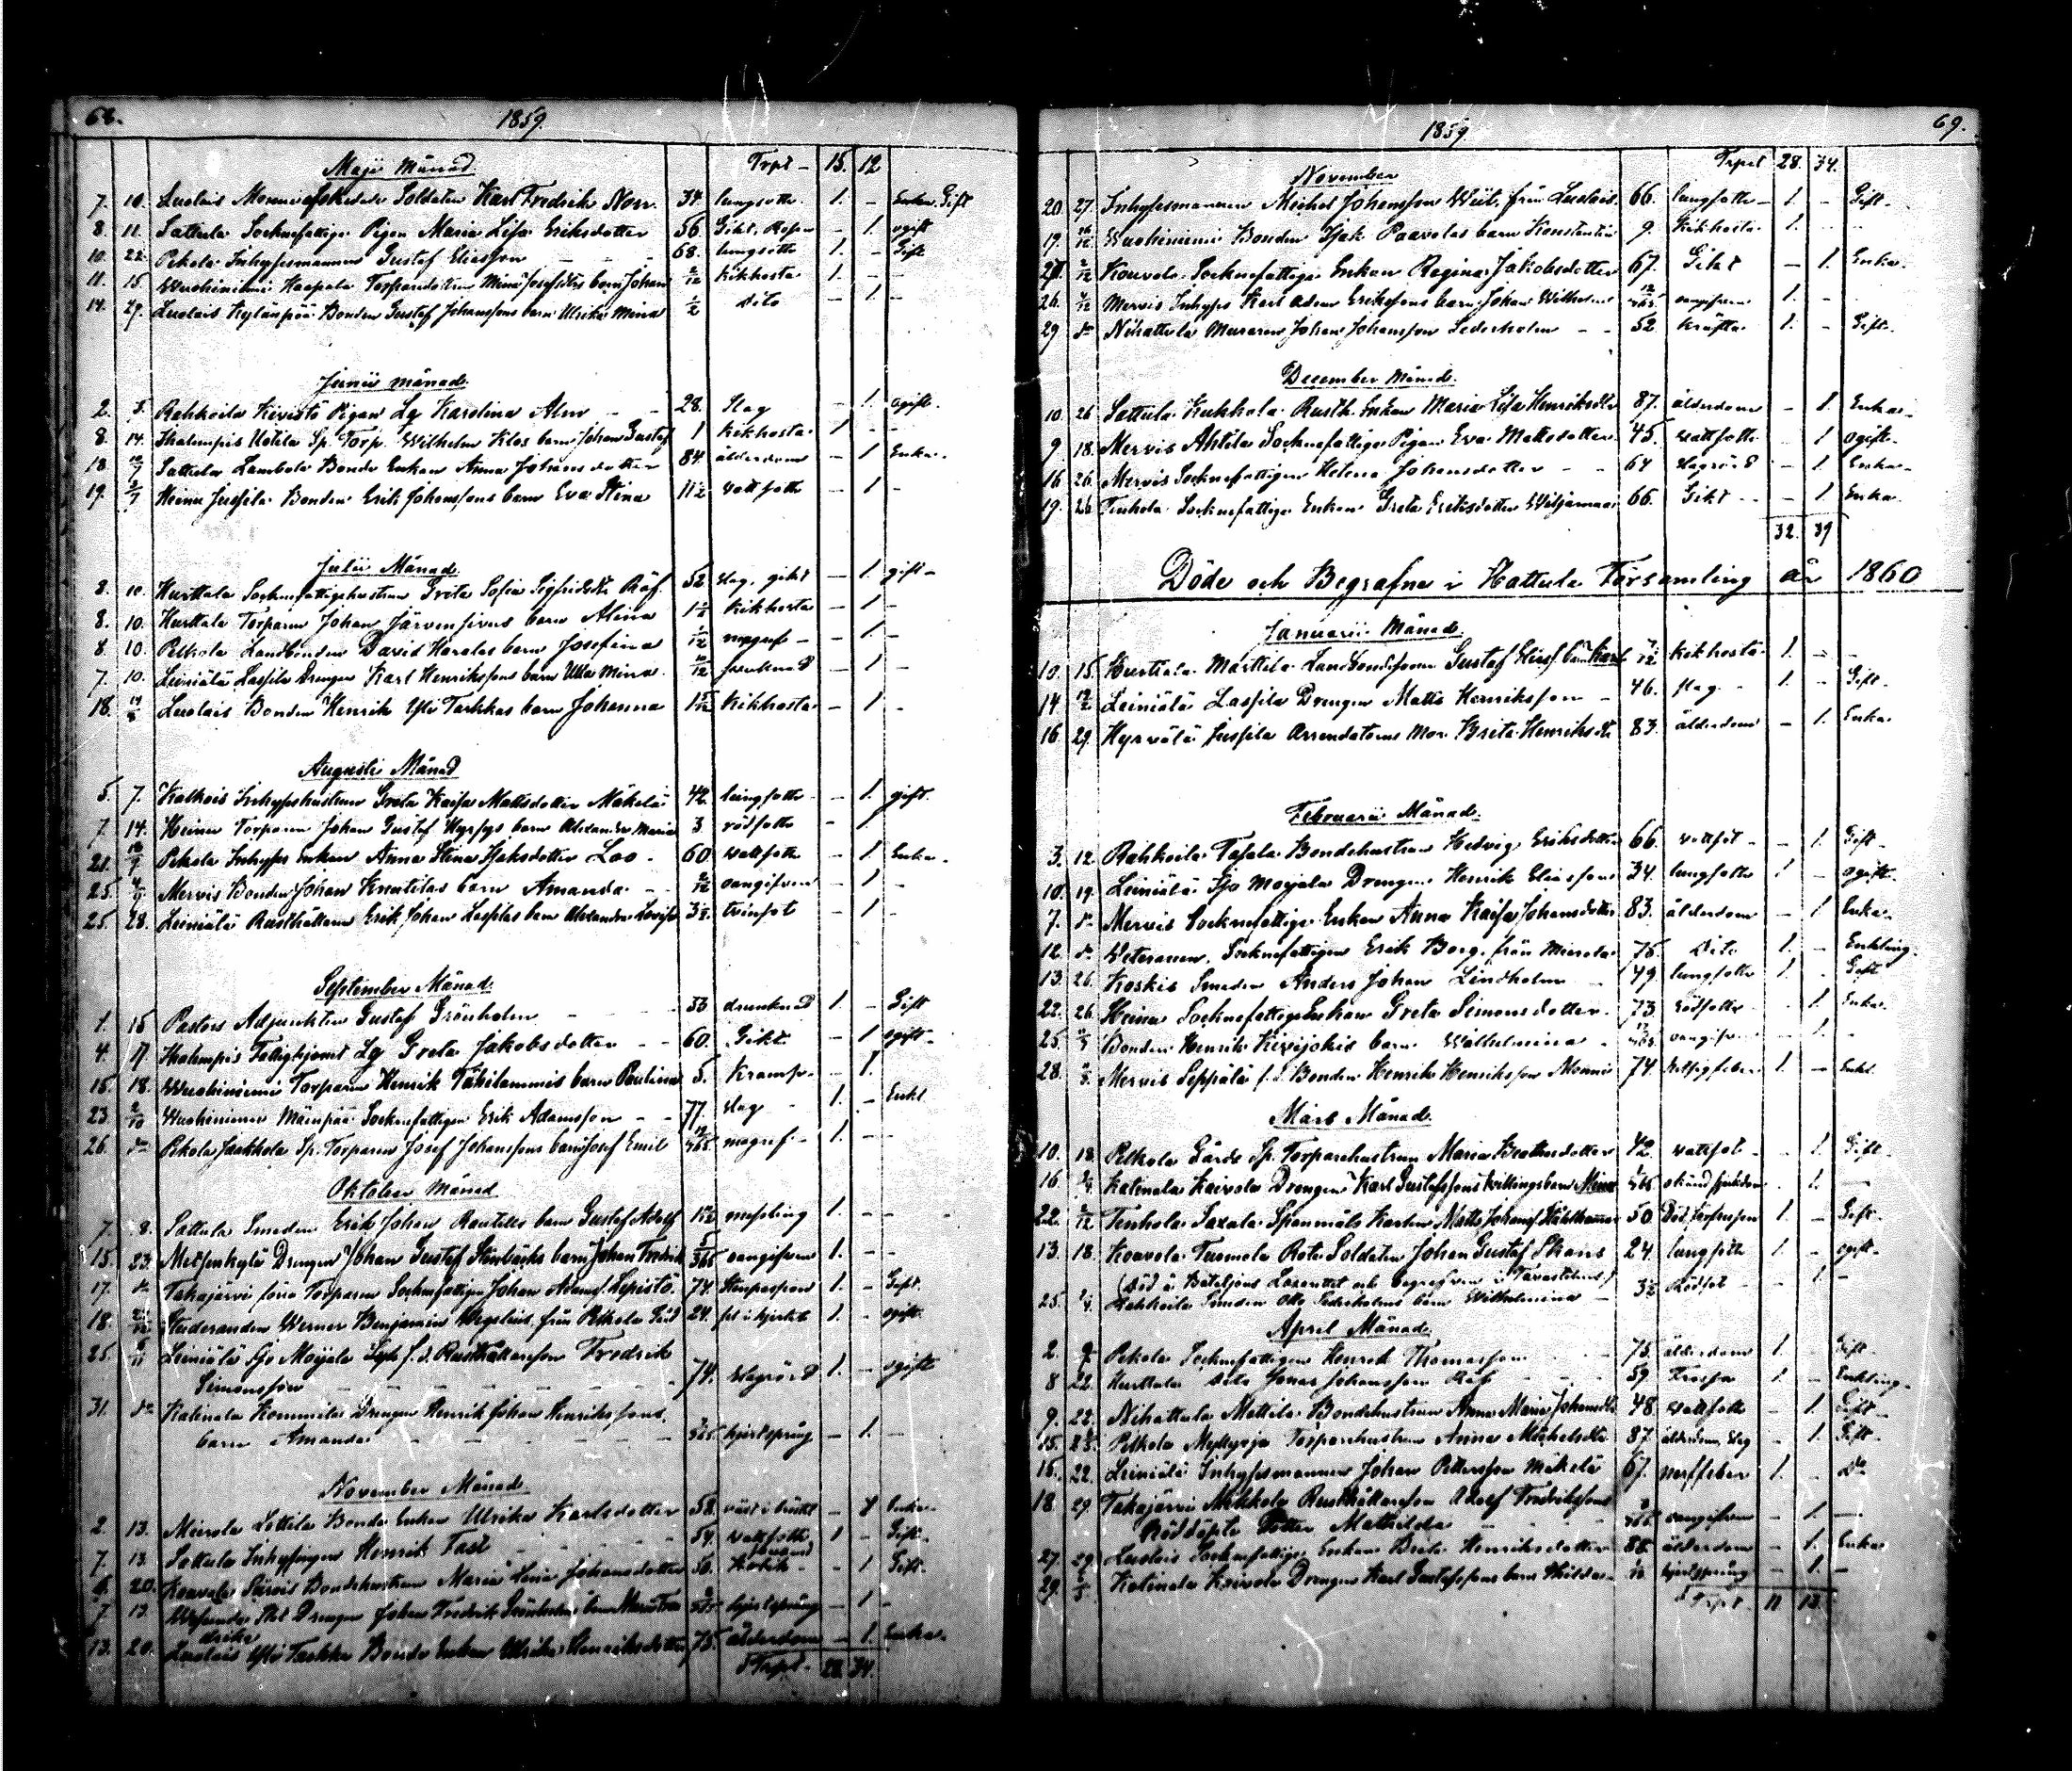 68.
1859.
Maji Månad
Trpt - 15. 12
7. 10. Luolais Monni afskedade Soldaten Karl Fredrik Norr. 34. lungsotte. 1. - Gift
8. 11. Sattula Socknefattige Pigan Maria Lisa Eriksdotter 56 Gikt, Rosen - 1. ogift
10. 22. Pekola Inhysesmannen Gustaf Eliasson 68. lungsotte 1. - Gift
11. 15 Wuohiniemi Haapala Torparedottern Mina Josefsdtrs barn Johan 2/12 kikhosta 1. -
14. 29. Luolais Kylänpää Bonden Gustaf Johanssons barn Ulrika Mina 1/2 dito - 1. -
Junii månad.
2. 5. Rahkoila Kivistö Pigan Lg Karolina Alm - - 28. Slag - 1. ogift.
8. 14. Ihalempis Uotila Sp. Torp. Wilhelm Klos barn Johan Gustaf 1 kikhosta 1. -
18 10/7 Sattula Lambola Bonde Enkan Anna Johansdotter 84. ålderdom - 1 Enka.
19. 3/7 Heinu Jussila Bonden Erik Johanssons barn Eva Stina 11 1/2 vattsotte - 1 -
Julii Månad.
8. 10. Hurttala Socknefattigehustrun Greta Sofia Sigfridsdtr Räf. 52 slag, gikt - 1. gift -
8. 10. Hurttala Torparen Johan Järvensivus barn Alina 1 1/2 kikhosta - 1 -
8 10. Pelkola Landbonden David Horalas barn Josefina 1/12 magref - - 1. -
7. 10. Leiniälä Lassila Drengen Karl Henrikssons barn Ulla Mina. 10/12 - 1 -
18. 14/8 Luolais Bonden Henrik Yli Tarkkas barn Johanna kikhosta - 1 -
Augusti Månad
5. 7. Kalkois Inhyseshustrun Greta Kaisa Mattsdotter Mäkelä 42. lungsotte - - 1. gift.
7. 14. Heinu Torparen Johan Gustaf Hyrsys barn Alexandra Maria 3. rödsotte - 1.
21. Pekola Inhyses Enkan Anna Stina Isaksdotter Lao - 60 vattsotte - 1 Enka -
25. 4/9 Mervis Bonden Johan Knuutilas barn Amanda - - 2/12 oangifven - 1 -
25. 28. Leiniälä Rusthållaren Erik Johan Lassilas barn Alexandra Lovisa 3 1/2. tvinsot - 1 -
September Månad.
1. 15 Pastors Adjunkten Gustaf Grönholm - - 33 drunknad 1. - Gift
4. 17 Ihalempis Fattighjonet Lg Greta Jakobsdotter - - 60. Gikt - 1 ogift -
15. 18. Wuohiniemi Torparen Henrik Täkilammis barn Paulina 5. Kramp - - 1.
23 2/10 Wuohiniemi Mäenpää Socknefattigen Erik Adamsson - - 77. slag - 1. - Enkl
26. do Pekola Jaakkola Sp. Torparen Josef Johanssons barn Josef Emil 12/365 magref. - 1. - -
Oktober Månad
7. 8. Sattula Smeden Erik Johan Rautells barn Gustaf Adolf messling 1. - -
15. 23. Metsenkylä Drengen Johan Gustaf Stenbäcks barn Johan Fredrik 5/365 oangifven 1. - -
17. do Takajärvi förre Torparen Socknefattigen Johan Adamss. Lepistö. 74. Stenpassion 1. - Gift.
18. Studeranden Werner Benjamin från Pelkola Gård 24. fel i hjertat 1. - ogift.
25. 6/11 Leiniälä Sjo Moijala f. d. Rusthållaresson Fredrik
Simonsson - - - 74. slagrörd 1. - ogift
31. do Katinala Kommila Drengen Henrik Johan Henrikssons
barn Amanda - - - 3/365 hjertsprång - 1. -
November Månad.
2. 13. Mierola Lettila Bonde Enkan Ulrika Karlsdotter 58. värk i bröstet - 1 Enka -
7. 13. Sattula Inhysingen Henrik Fast - - 54. vattsotte 1 - Gift.
6. 20. Kouvala Sarvis Bondehustrun Maria Lena Johansdotter 56. Kolik - - 1 Gift.
7. 13. Drengen Johan Fredrik hjertsprång - 1 -
13. 20. Luolais Yli Tarkka Bonde Enkan Ulrika Henriksdotter 75. ålderdom - 1. Enka.
Trpt. 28. 34.
69.
1859.
November
Trpt 28. 34.
20. 27. Inhysesmannen Michel Johansson Weit, från Luolais. 66. lungsotte - 1. - Gift -
19. Wuohiniemi Bonden Isak Paavolas barn Konstantin 9. Kikhosta 1. - -
21. 2/12 Kouvola Socknefattige Enkan Regina Jakobsdotter 67. Gikt - 1. Enka.
26. Mervis Inhyses Karl Adam Erikssons barn Johan Wilhelm 12/365 oangifven 1. -
29 do Nihattula Muraren Johan Johansson Cederholm - - 52 kräfta 1. - Gift.
December Månad.
10. 26 Sattula Kukkola Rusth. Enkan Maria Lisa Henriksdtr 87. ålderdom - 1. Enka -
9 18. Mervis Ahtila Socknefattige Pigan Eva Mattsdotter 45. vattsotte - 1 Ogift.
16 26. Mervis Socknefattigen Helena Johansdotter - - 64 slagrörd - 1. Enka -
19. 26 Tenhola Socknefattige Enkan Greta Eriksdotter Wiljamaa 66. Gikt - - 1 Enka.
32. 39
Döde och Begrafne i Hattula Församling år 1860
Januarii Månad.
10. 15. Hurttala Marttila Landbondesonen Gustaf Eliass. barn Karl kikhosta 1. - -
14 12/2 Leiniälä Lassila Drengen Matts Henriksson - 46. slag. - 1. - Gift -
16. 29. Hyrvälä Jussila Arrendatorns Mor Brita Henriksdtr 83. ålderdom - 1. Enka.
Februarii Månad.
3. 12. Rahkoila Tasala Bondehustrun Hedvig Eriksdotter 66. vattsot - - 1. Gift -
10. 19. Leiniälä Sjo Moijala Drengen Henrik Eliasson 34. lungsotte 1 - ogift.
7. do Mervis Socknefattige Enkan Anna Kaisa Johansdotter 83. ålderdom - 1 Enka -
12. do Veteranen, Socknefattigen Erik Borg, från Mierola 76. Dito 1. - Enkling.
13. 26. Koskis Smeden Anders Johan Lindholm - 49. lungsotte 1. - Gift
22. 26. Heinu Socknefattige Enkan Greta Simonsdotter - 73. rödsotte - 1 Enka.
25. Bonden Henrik Kivijokis barn Wilhelmina - oangifven - 1. -
28. Mervis Seppälä f. d. Bonden Henrik Henriksson Monni 74. 1. - Enkl
Mars Månad.
10. 18. Pelkola Gårds Sp. Torparehustrun Maria Beatasdotter 42. vattsot - - 1. Gift -
16 Katinala Kaivola Drengen Karl Gustafssons tvillingsbarn Mina okänd sjukdom - 1. -
22. Tenhola Saxala Spannmåls Karlen Matts Johanss. 50. 1. - Gift -
13. 18. Kouvola Tuomola Rote Soldaten Johan Gustaf Skans 24. lungsotte 1. - ogift.
(död å Bataljons Lazarettet och begrafven i Tavastehus)
25. 1/4 Rahkoila Smeden Otto Cederholms barn Wilhelmina - 3 1/2 Rödsot - 1 -
April Månad.
2. 9. Pekola Socknefattigen Henrik Thomasson - - 75. ålderdom 1. - Gift -
8 22. Hurttala dito Jonas Johansson Räf - - 59 Frossa 1. - Enkling -
9. 22. Nihattula Mattila Bondehustrun Anna Maria Johansdtr 48. vattsotte - 1 Gift -
15. Pelkola Myllyoja Torparehustrun Anna Michelsdtr 87. ålderdom, slag - 1. Gift -
15. 22. Leiniälä Inhysesmannen Johan Pettersson Mäkelä 67. nerffeber 1. - do
18 29. Takajärvi Mikkola Rusthållaresson Adolf Fredrikssons
Nöddöpte Dotter Mathilda - - oangifven - 1. -
27. 29. Luolais Socknefattige Enkan Brita Henriksdotter 88. ålderdom - 1. Enka
29. Katinala Kaivola Drengen Karl Gustafssons barn Hilda - hjertsprång - 1. -
Trpt. 11 13.